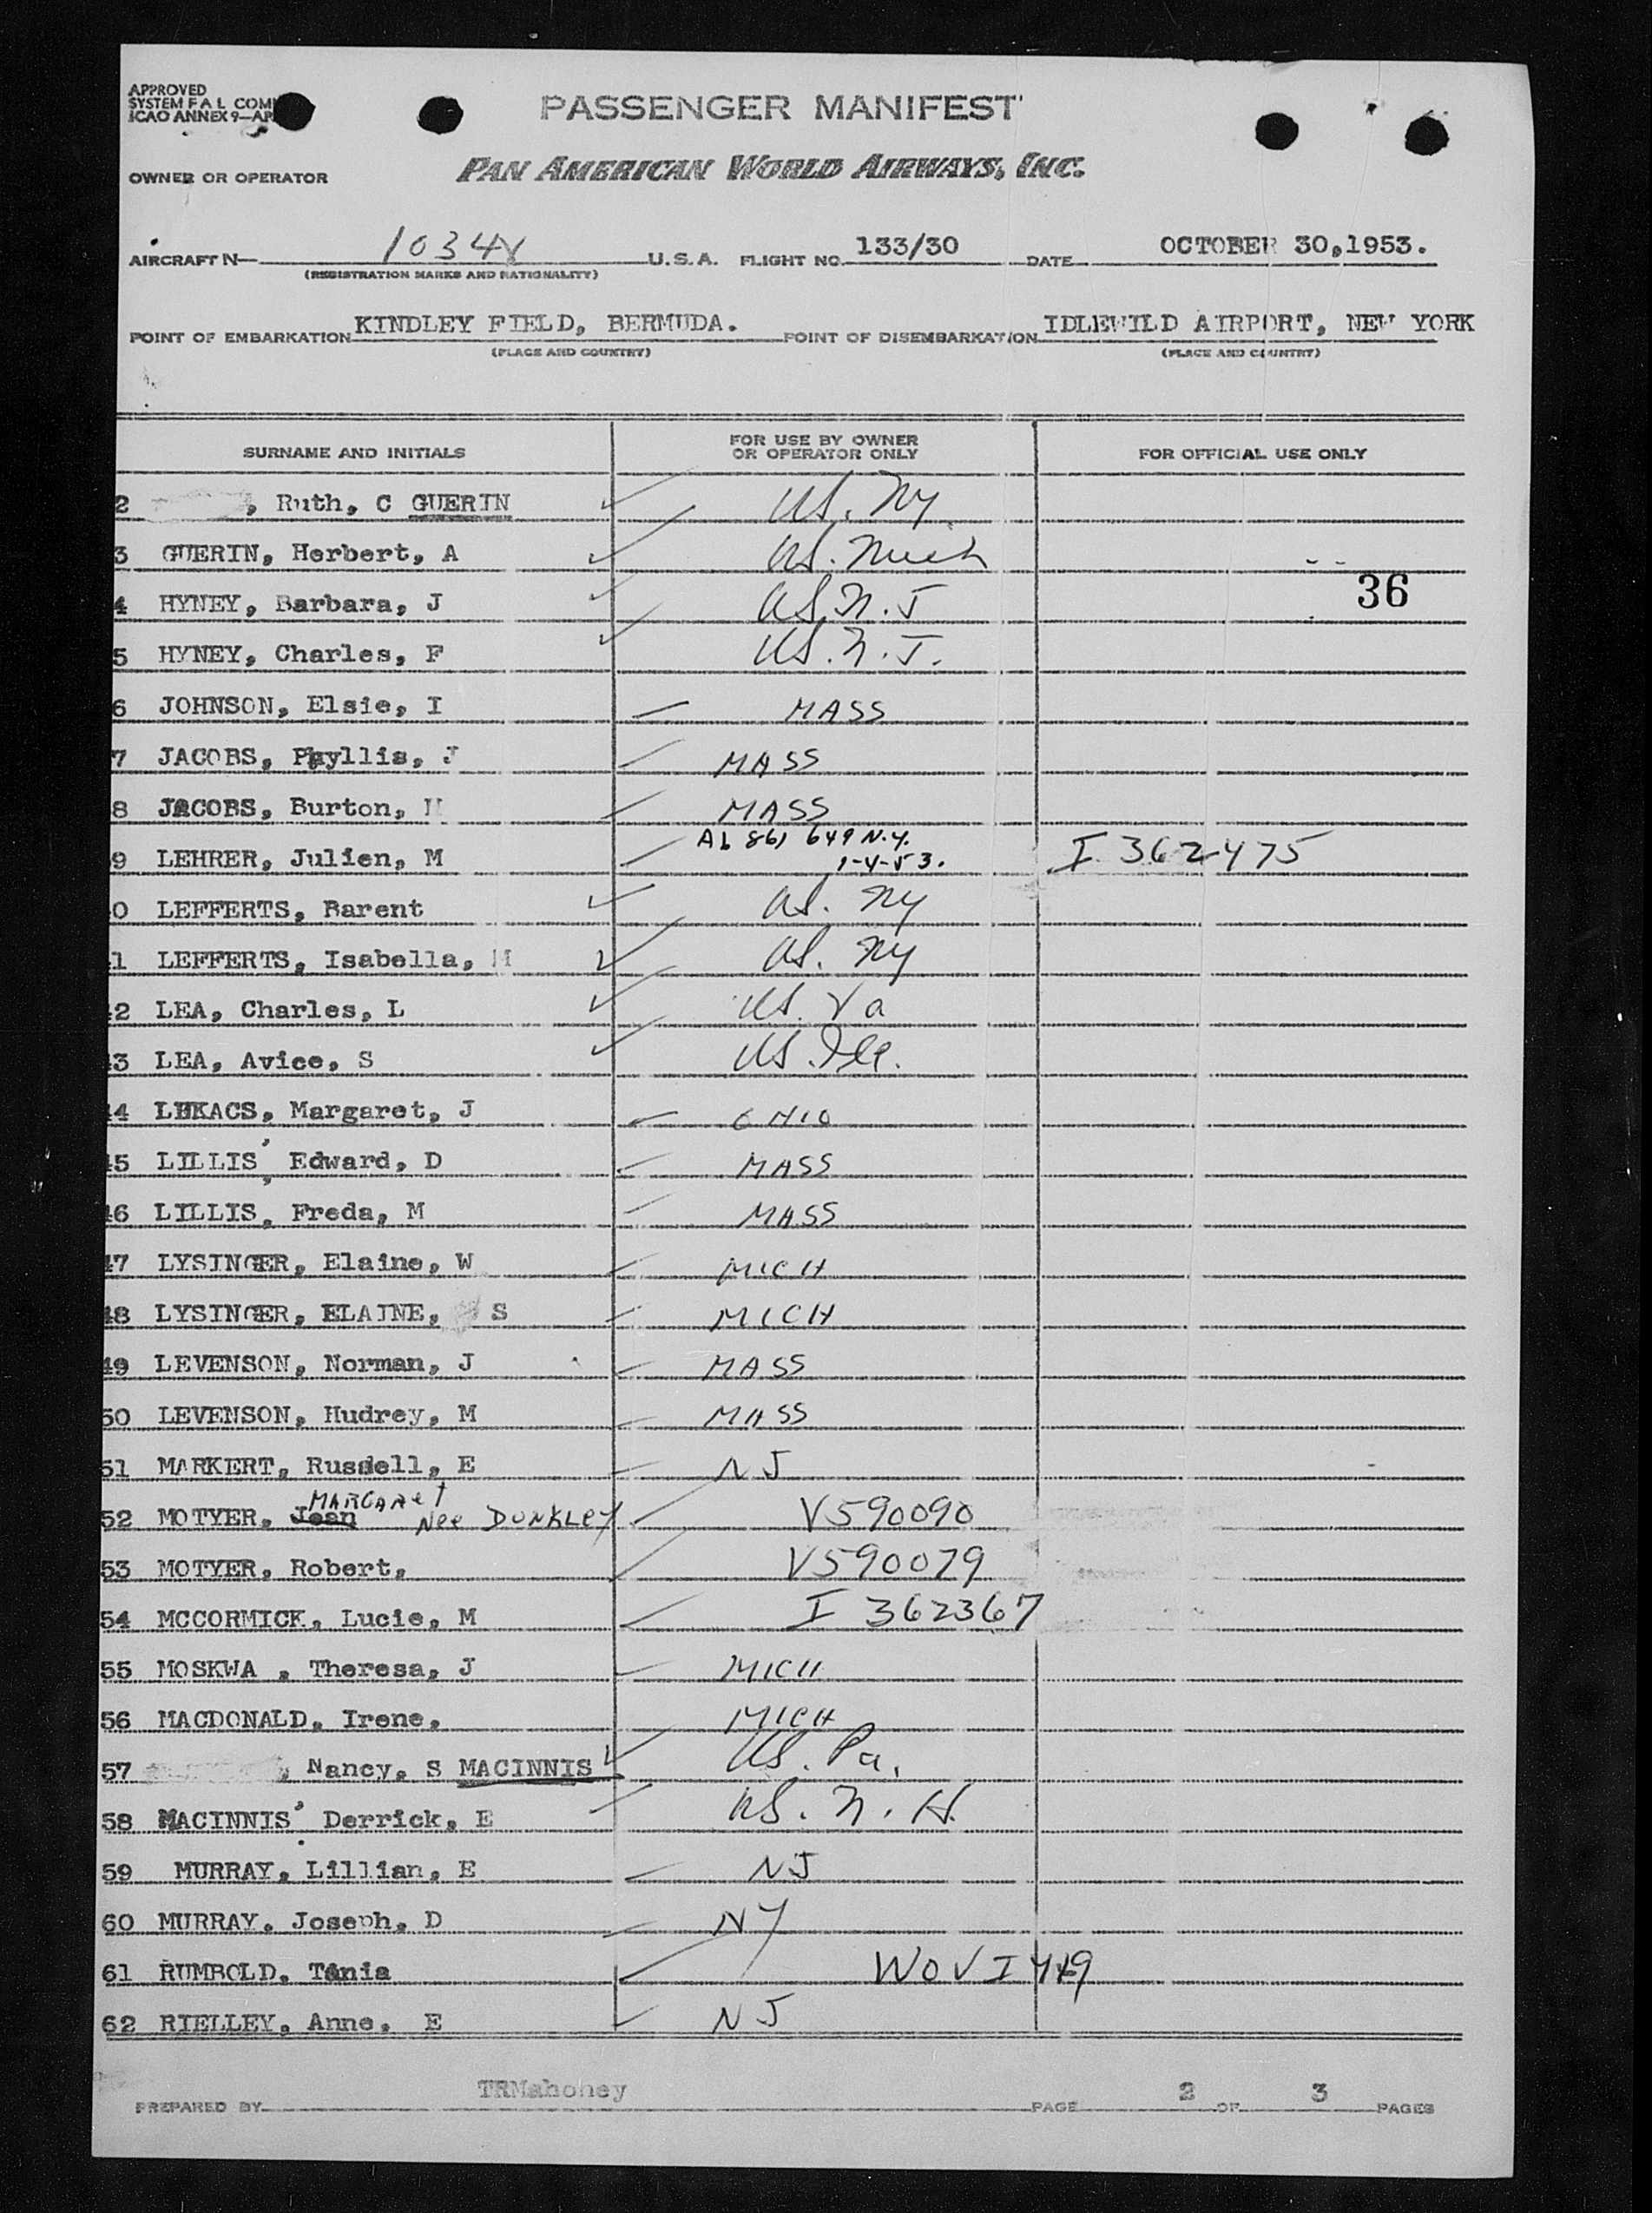 APPROVED
SYSTEM F A L COM
ICAO ANNEX 9—AP
PASSENGER MANIFEST
OWNER OR OPERATOR PAN AMERICAN WORLD AIRWAYS, INC.
AIRCRAFT N— 1034V U.S.A. FLIGHT NO. 133/30 DATE OCTOBER 30,1953.
(REGISTRATION MARKS AND NATIONALITY)
POINT OF EMBARKATION KINDLEY FIELD, BERMUDA. POINT OF DISEMBARKATION IDLEWILD AIRPORT, NEW YORK
(PLACE AND COUNTRY) (PLACE AND COUNTRY)
SURNAME AND INITIALS FOR USE BY OWNER OR OPERATOR ONLY FOR OFFICIAL USE ONLY
2 , Ruth, C GUERIN US. NY.
3 GUERIN, Herbert, A US. Mich
36
4 HYNEY, Barbara, J US. N.J
5 HYNEY, Charles, F US. N.J.
6 JOHNSON, Elsie, I MASS
7 JACOBS, Phyllis, J MASS
8 JACOBS, Burton, H MASS
9 LEHRER, Julien, M A6 861 649 N.Y. 1-4-53. I 362475
0 LEFFERTS, Barent US. NY
1 LEFFERTS, Isabella, M US. NY
2 LEA, Charles, L US. Va
3 LEA, Avice, S US. Ill.
44 LEKACS, Margaret, J OHIO
45 LILLIS, Edward, D MASS
46 LILLIS, Freda, M MASS
47 LYSINGER, Elaine, W MICH
48 LYSINGER, ELAINE, S MICH
49 LEVENSON, Norman, J MASS
50 LEVENSON, Hudrey, M MASS
51 MARKERT, Russell, E NJ
52 MOTYER, Jean MARGARET Nee DUNKLEY V590090
53 MOTYER, Robert, V590079
54 MCCORMICK, Lucie, M I 362367
55 MOSKWA , Theresa, J MICH
56 MACDONALD, Irene, MICH
57 , Nancy, S MACINNIS US. Pa.
58 MACINNIS, Derrick, E US. N. H.
59 MURRAY, Lillian, E NJ
60 MURRAY, Joseph, D NY
61 RUMBOLD, Tania WOVI
62 RIELLEY, Anne, E NJ
PREPARED BY TRMahoney PAGE 2 OF 3 PAGES